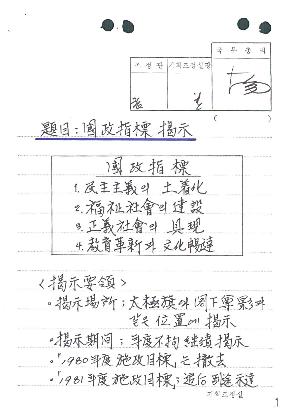 국무총리
조정관 기획조정실장
( )
題目 : 國政指標 揭示
國政指標
1. 民主主義의 土着化
2. 福祉社會의 建設
3. 正義社會의 具現
4. 敎育革新과 文化暢達
<揭示要領>
· 揭示場所 : 太極旗와 閣下寫眞과
같은 位置에 揭示
· 揭示期間 : 年度不拘 繼續揭示
· 「1980年度 施政目標」는 撤去
· 「1981年度 施政目標」: 追后 別途示達
기획조정실
1